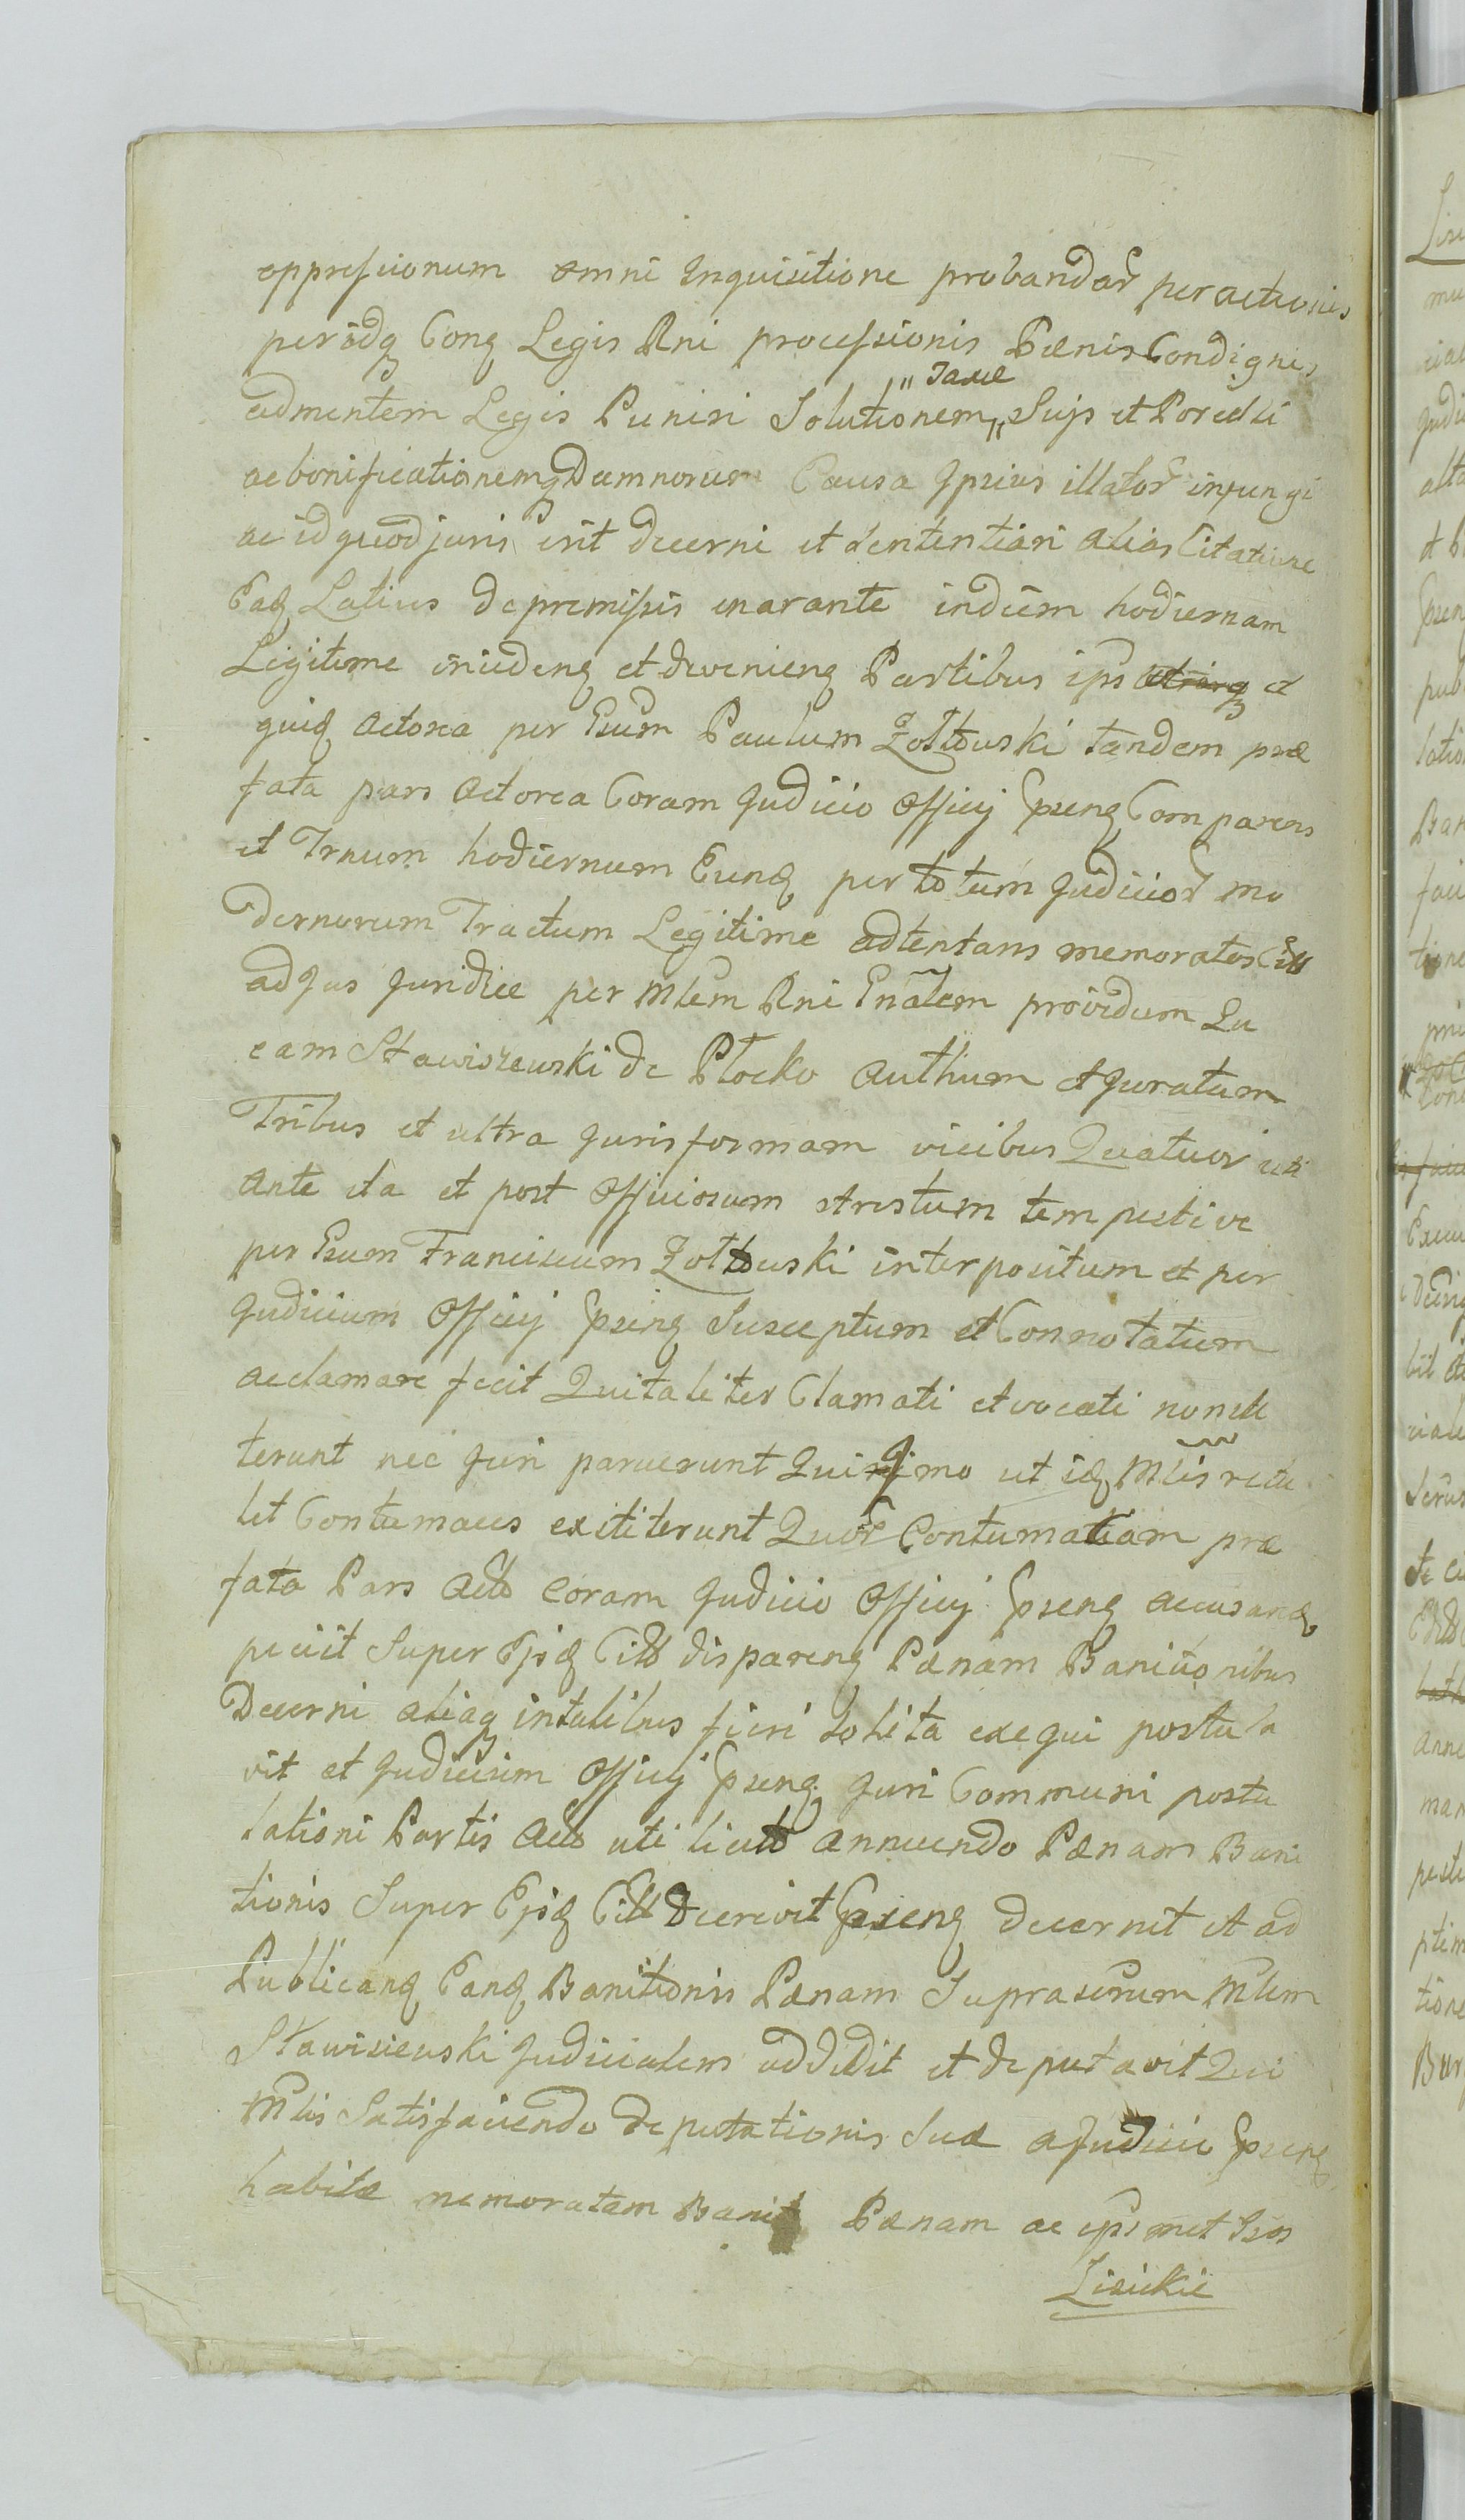 oppressionum omni Inquisitione probandar peractionis
peridq Conq Legis Rni processionis Pænis Condignis
admentem Legis Puniri Solutionem „ Taxæ „ Suis et Porcelli
ac bonificationemq Damnorum Causa Ipsius illator injungi
ac id quod juris erit decerni et sententiari alias Citatione
Eaq Latius de premissis enarante indiem hodiernam
Legitime inciden et devenien Partibus ips utrisq et
quid Actorea per Gsum Paulum Zołtowski tandem præ
fata pars Actorea Coram Judicio Officij Psenq Comparens
et Trnum hodiernum Eund per totum Judicior mo
dernorum Tractum Legitime adtentans memoratos Citt
ad Jus Juridice per Mlem Rni Gnalem providum Lu
cam Stawiszewski de Płocko Authum et Juratum
Tribus et ultra Juris formam vicibus Quatuor uti
Ante ita et post Officiosum Arestum tempestive
per Gsum Franciscum Zołtowski interpositum et per
Judicium Officij Psenq Susceptum et Connotatum
acclamare fecit Qui taliter Clamati et vocati non ste
terunt nec Juri paruerunt Quinimo ut id Mlis retu
lit Contumaces exititerunt Quor Contumatiam præ
fata Pars Act Coram Judicio Officij Psenq accusand
peciit Super Ejsd Citt disparenq Pænam Banitionibus
Decerni aliaq in talibus fieri solita exequi postula
vit et Judicium Officij Psenq Juri Communi postu
lationi Partis Act uti licit annuendo Pænam Bani
tionis Super Ejsd Citt decrevit Psenq decernit et ad
Publicand Eand Banitionis Pænam Suprascrum Mlem
Stawiszewski Judicialem addidit et deputavit Qui
Mlis Satisfaciendo deputationis Suæ a Judicio Psenq
habitæ memoratam Banit Pænam ac ipsmet Gsos
Lisickie